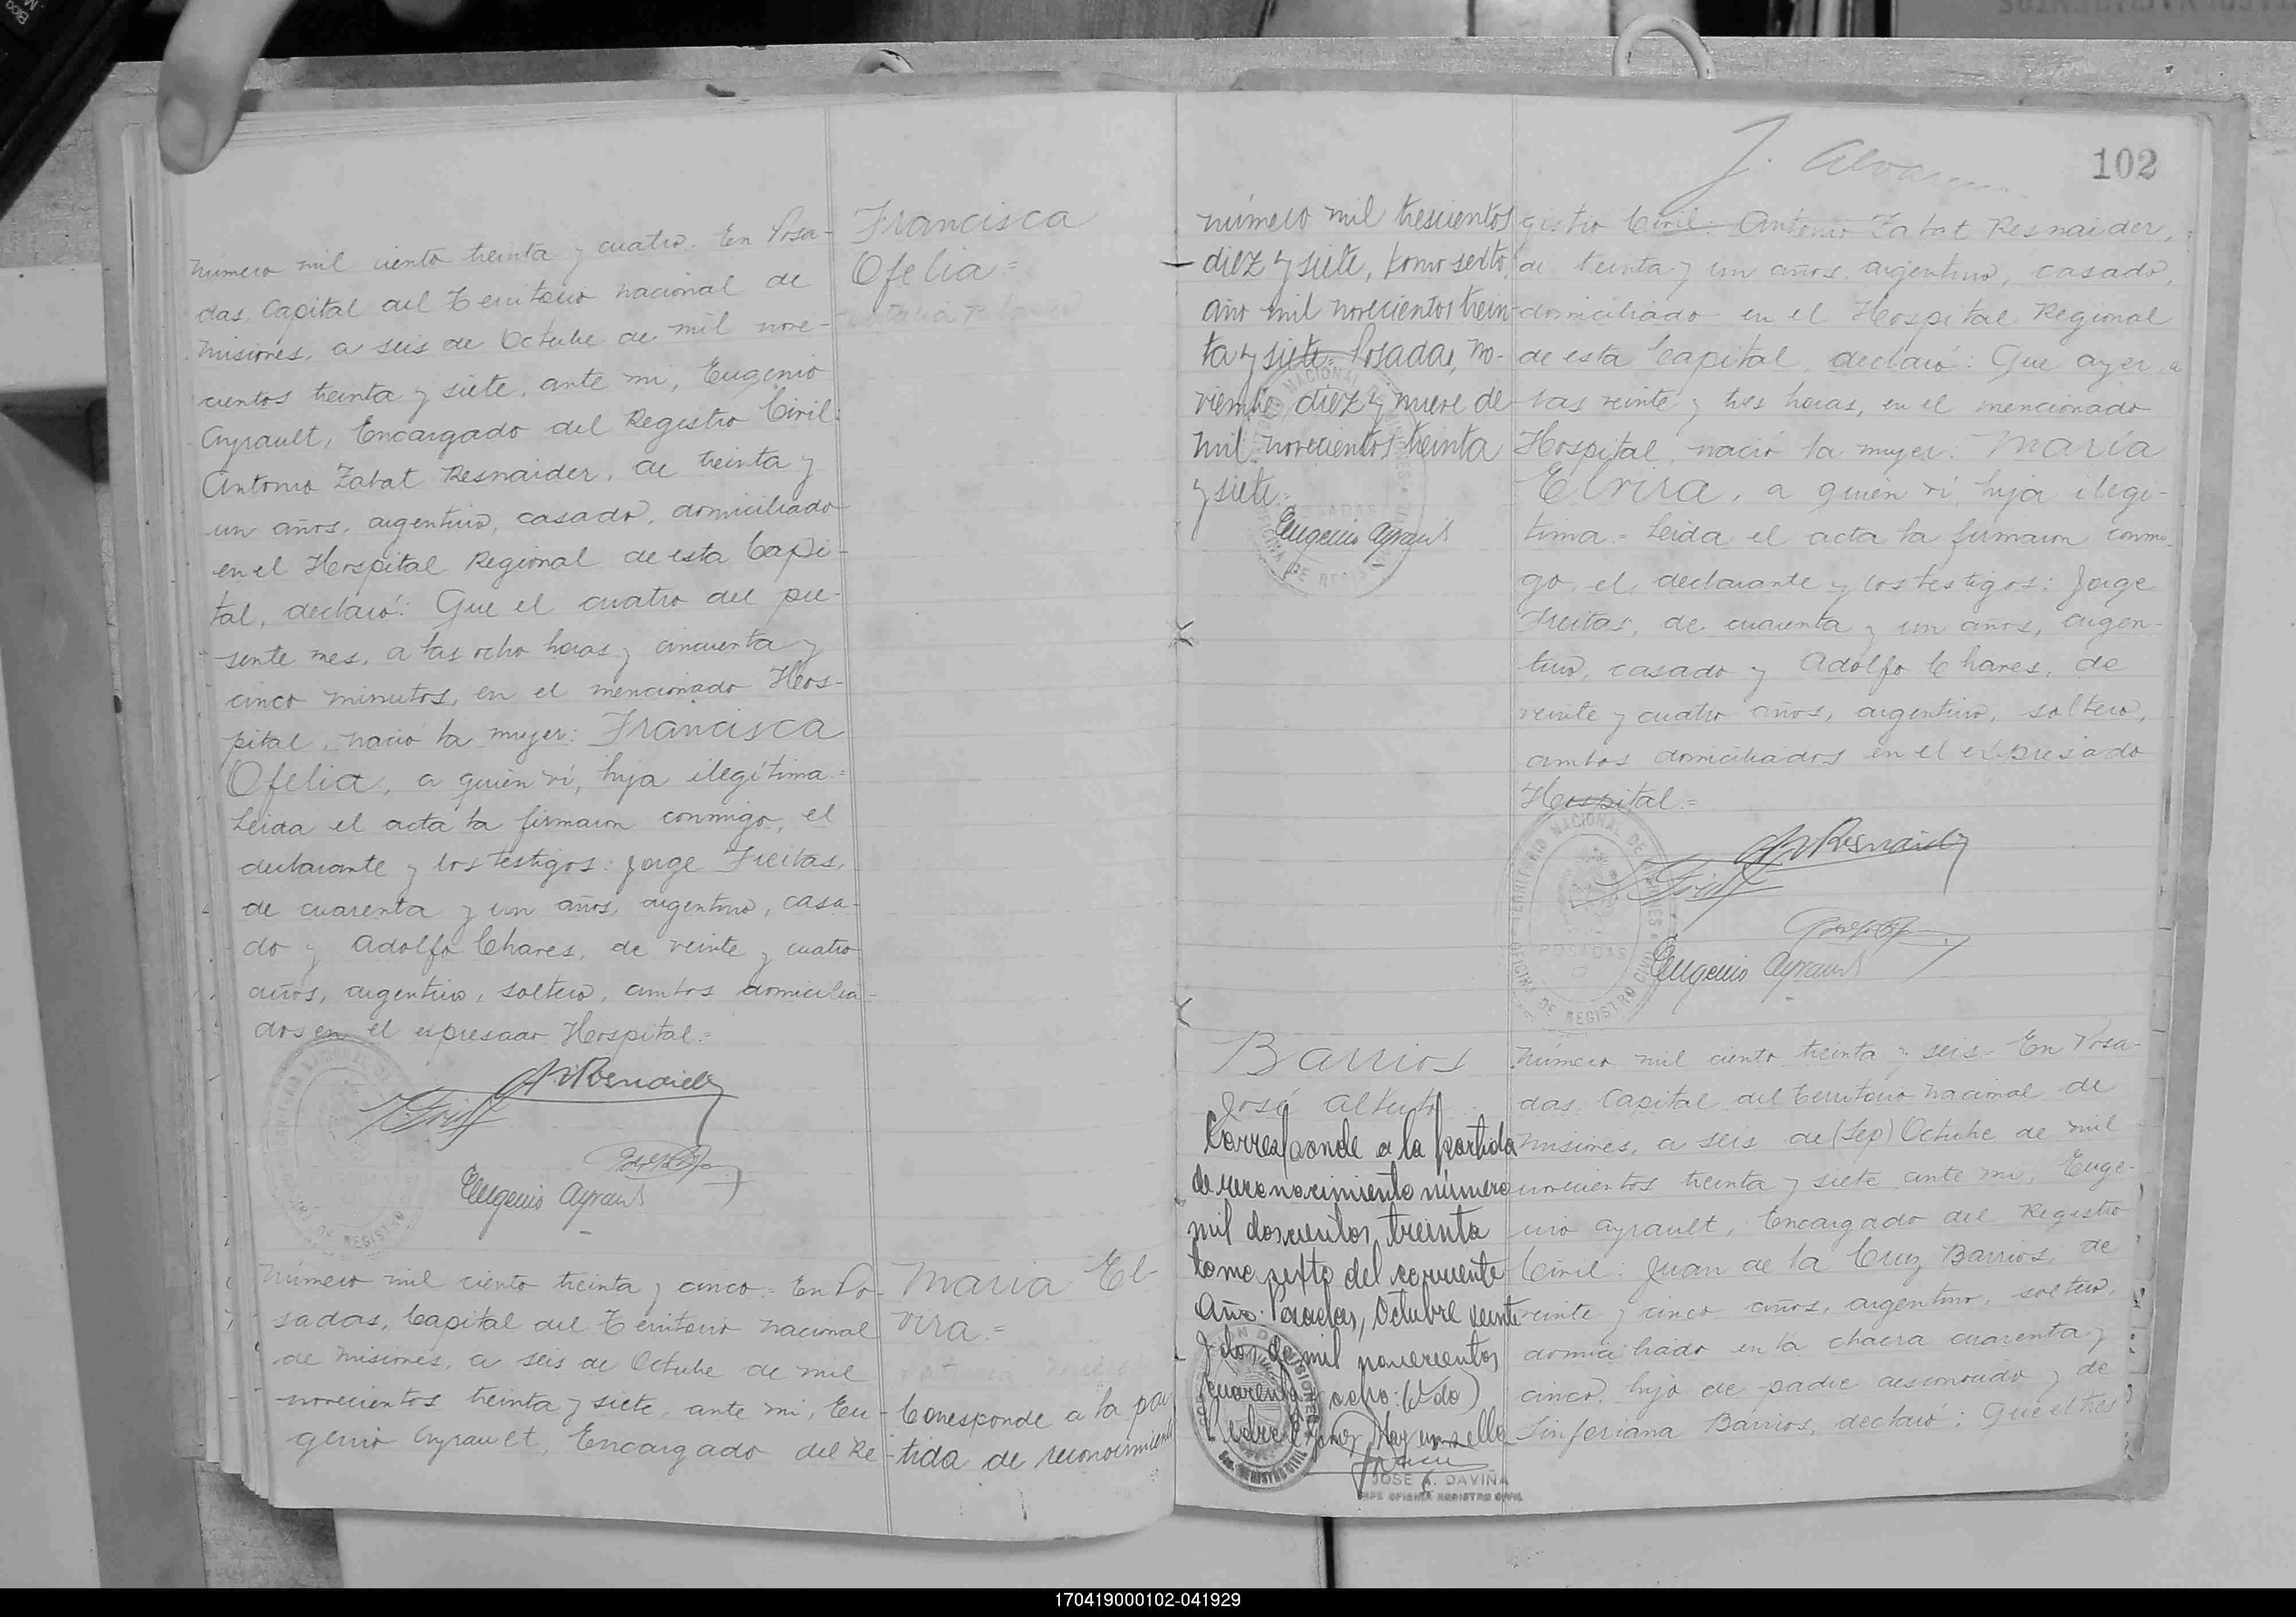 Número mil ciento treinta y cuatro. En Posa-
das, Capital del Territorio nacional de
Misiones, a seis de Octubre de mil nove-
cientos treinta y siete, ante mi, Eugenio
Ayrault, Encargado del Registro Civil:
Antonio Zabat Resnaider, de treinta y
un años, argentino, casado, domiciliado
en el Hospital Regional de esta Capi-
tal, declaró: Que el cuatro del pre-
sente mes, a las ocho horas y cincuenta y
cinco minutos, en el mencionado Hos-
pital, nació la mujer: Francisca
Ofelia, a quién ví, hija ilegítima.=
Leida el acta la firmaron conmigo, el
declarante y los testigos: Jorge Freitas,
de cuarenta y un años, argentino, casa-
do y Adolfo Chares, de veinte y cuatro
años, argentino, soltero, ambos domicilia-
dos en el expresado Hospital.=
Eugenio Ayrault
Francisca
Ofelia=
Número mil ciento treinta y cinco.= En Po-
sadas, Capital del Territorio nacional
de Misiones, a seis de Octubre de mil
novecientos treinta y siete, ante mi, Eu-
genio Ayrault, Encargado del Re-
Maria El-
vira.=
Corresponde a la par
tida de reconocimiento
número mil trescientos
diez y siete, tomo sexto,
año mil novecientos trein-
ta y siete.= Posadas, no-
viembre diez y nueve de
mil novecientos treinta
y siete.=
Eugenio Ayrault
J.
102
gistro Civil: Antonio Zabat Resnaider,
de treinta y un años, argentino, casado,
domiciliado en el Hospital Regional
de esta Capital, declaró: Que ayer, a
las veinte y tres horas, en el mencionado
Hospital, nació la mujer: María
Elvira, a quién ví, hija ilegi-
tima.= Leida el acta la firmaron conmi-
go, el declarante y los testigos: Jorge
Freitas, de cuarenta y un años, argen-
tino, casado y Adolfo Chares, de
veinte y cuatro años, argentino, soltero,
ambos domiciliados en el expresado
Hospital.=
TERRITORIO NACIONAL DE MISIONES
POSADAS
OFICINA DE REGISTRO CIVIL
Eugenio Ayrault
Barrios
José Alberto
Corresponde a la partida
de reconocimiento número
mil doscientos treinta
tomo sexto del corriente
año. Posadas, Octubre veinte
y dos de mil novecientos
cuarenta y ocho: (Fdo)
Hay un sello
JOSE A. DAVIÑA
JEFE OFICINA REGISTRO CIVIL
Número mil ciento treinta y seis.= En Posa-
das, Capital del Territorio nacional de
Misiones, a seis de (Sep) Octubre de mil
novecientos treinta y siete, ante mi, Euge-
nio Ayrault, Encargado del Registro
Civil: Juan de la Cruz Barrios, de
veinte y cinco años, argentino, soltero,
domiciliado en la chacra cuarenta y
cinco, hijo de padre desconocido y de
Sinforiana Barrios, declaró: Que el tres
170419000102-041929